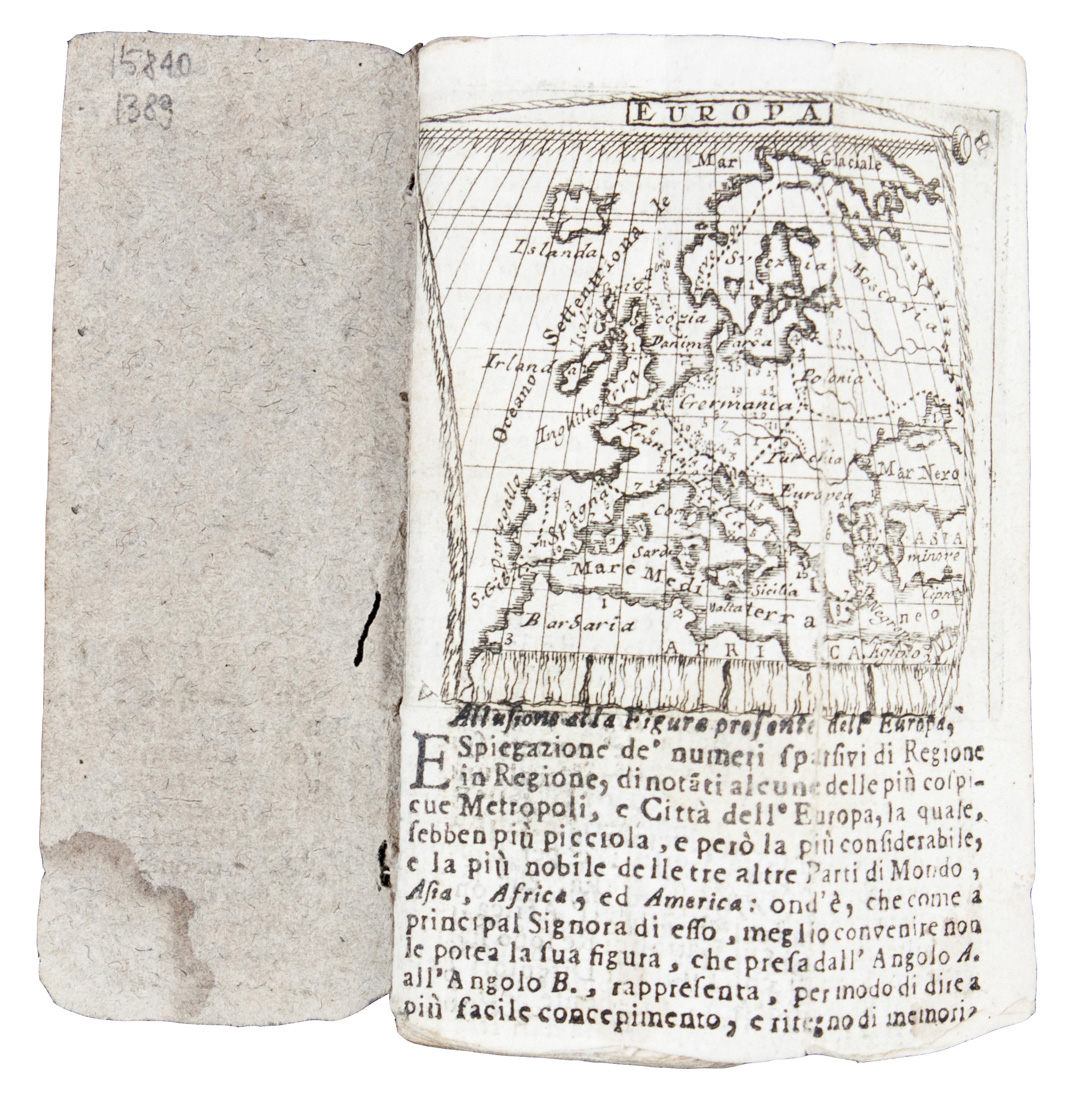 15840
1389
EUROPA
Mar Glaciale
Islanda
Settentrionale
Oceano
Svezzia
Moscovia
Scozia
Danimarca
Irlanda
Inghilterra
Polonia
Germania
Francia
Turchia
Europea
Mar Nero
Portogallo
Spagna
ASIA
minore
Sard
Mare Mediterraneo
Sicilia
Cipro
Malta
Barbaria
AFRICA
Egitto
Allusione alla Figura presente dell' Europa,
E Spiegazione de' numeri sparsivi di Regione
in Regione, dinotāti alcune delle più cospi-
cue Metropoli, e Città dell' Europa, la quale,
sebben più picciola, e però la più considerabile,
e la più nobile delle tre altre Parti di Mondo,
Asia, Africa, ed America: ond'è, che come a
principal Signora di esso, meglio convenire non
le potea la sua figura, che presa dall' Angolo A.
all' Angolo B., rappresenta, per modo di dire a
più facile concepimento, e ritegno di memoria